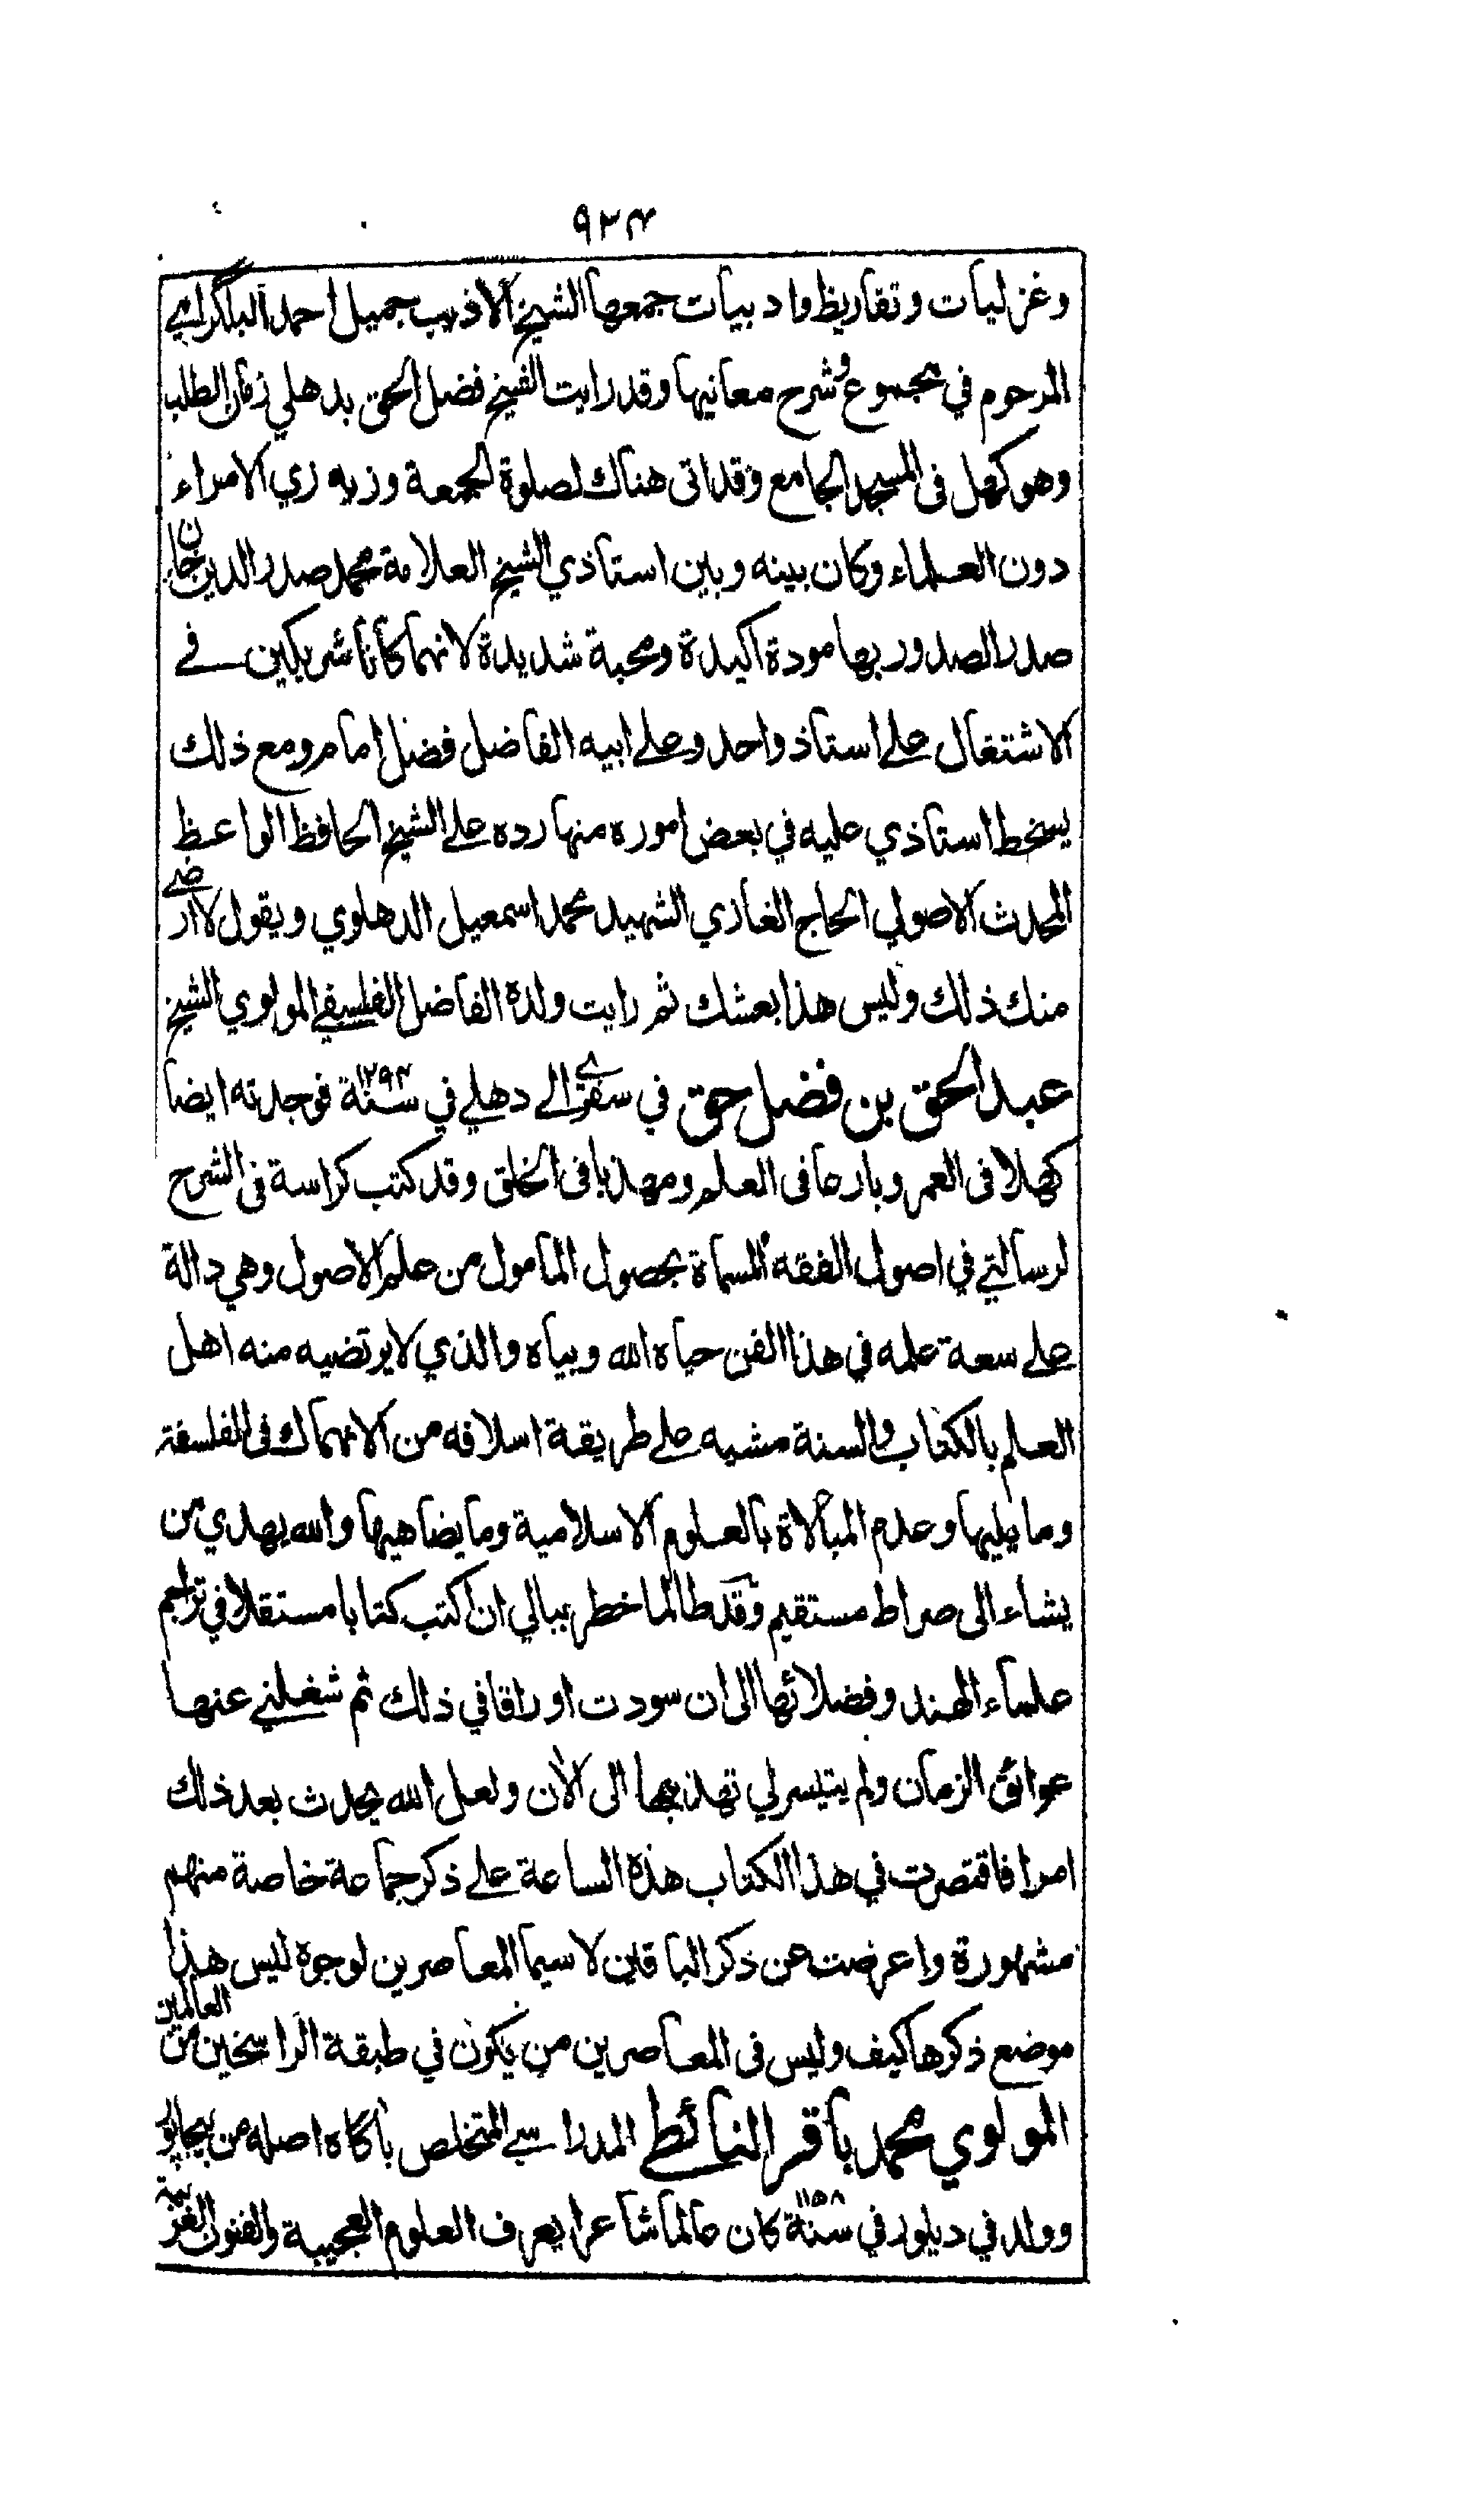 ٩٢٤
وغزليات وتقاريظ وادبيات جمعها الشيخ الاديب جميل احمد البلگرامي
المرحوم في مجموع وشرح معانيها وقد رايت الشيخ فضل الحق بدهلي زمان الطلب
وهو كهل فى المسجد الجامع وقد اتى هناك لصلوة الجمعة وزيه زي الامراء
دون العلماء وكان بينه وبين استاذي الشيخ العلامة محمد صدر الدين خان
صدر الصدور بها مودة اكيدة ومحبة شديدة لانهما كانا شريكين في
الاشتغال على استاذ واحد وعلى ابيه الفاضل فضل امام ومع ذلك
يسخط استاذي عليه في بعض اموره منها رده على الشيخ الحافظ الواعظ
المحدث الاصولي الحاج الغازي الشهيد محمد اسمعيل الدهلوي ويقول لا ارضى
منك ذلك وليس هذا بعشك ثم رايت ولده الفاضل الفلسفي المولوي الشيخ
عبد الحق بن فضل حق في سفري الى دهلي في سنة ١٢٩٤ فوجدته ايضا
كهلا فى العمر وبارعا فى العلم ومهذبا فى الخلق وقد كتب كراسة فى الشرح
لرسالتي في اصول الفقه المسماة بحصول المامول من علم الاصول وهي دالة
على سعة علمه في هذا الفن حياه الله وبياه والذي لا يرتضيه منه اهل
العلم بالكتاب والسنة مشيه على طريقة اسلافه من الانهماك فى الفلسفة
وما يليها وعدم المبالاة بالعلوم الاسلامية وما يضاهيها والله يهدي من
يشاء الى صراط مستقيم وقد طالما خطر ببالي ان اكتب كتابا مستقلا في تراجم
علماء الهند وفضلائها الى ان سودت اوراقا في ذلك ثم شغلني عنها
عوائق الزمان ولم يتيسر لي تهذيبها الى الآن ولعل الله يحدث بعد ذلك
امرا فاقتصرت في هذا الكتاب هذه الساعة على ذكر جماعة خاصة منهم
مشهورة واعرضت عن ذكر الباقين لا سيما المعاصرين لوجوه ليس هذا
موضع ذكرها كيف وليس فى المعاصرين من يكون في طبقة الراسخين من العالمين
المولوي محمد باقر النائطي المدراسي المتخلص بآگاه اصله من بيجاپور
وولد في ديلور في سنة ١١٥٨ كان عالما شاعرا يعرف العلوم العجيبة والفنون الغريبة